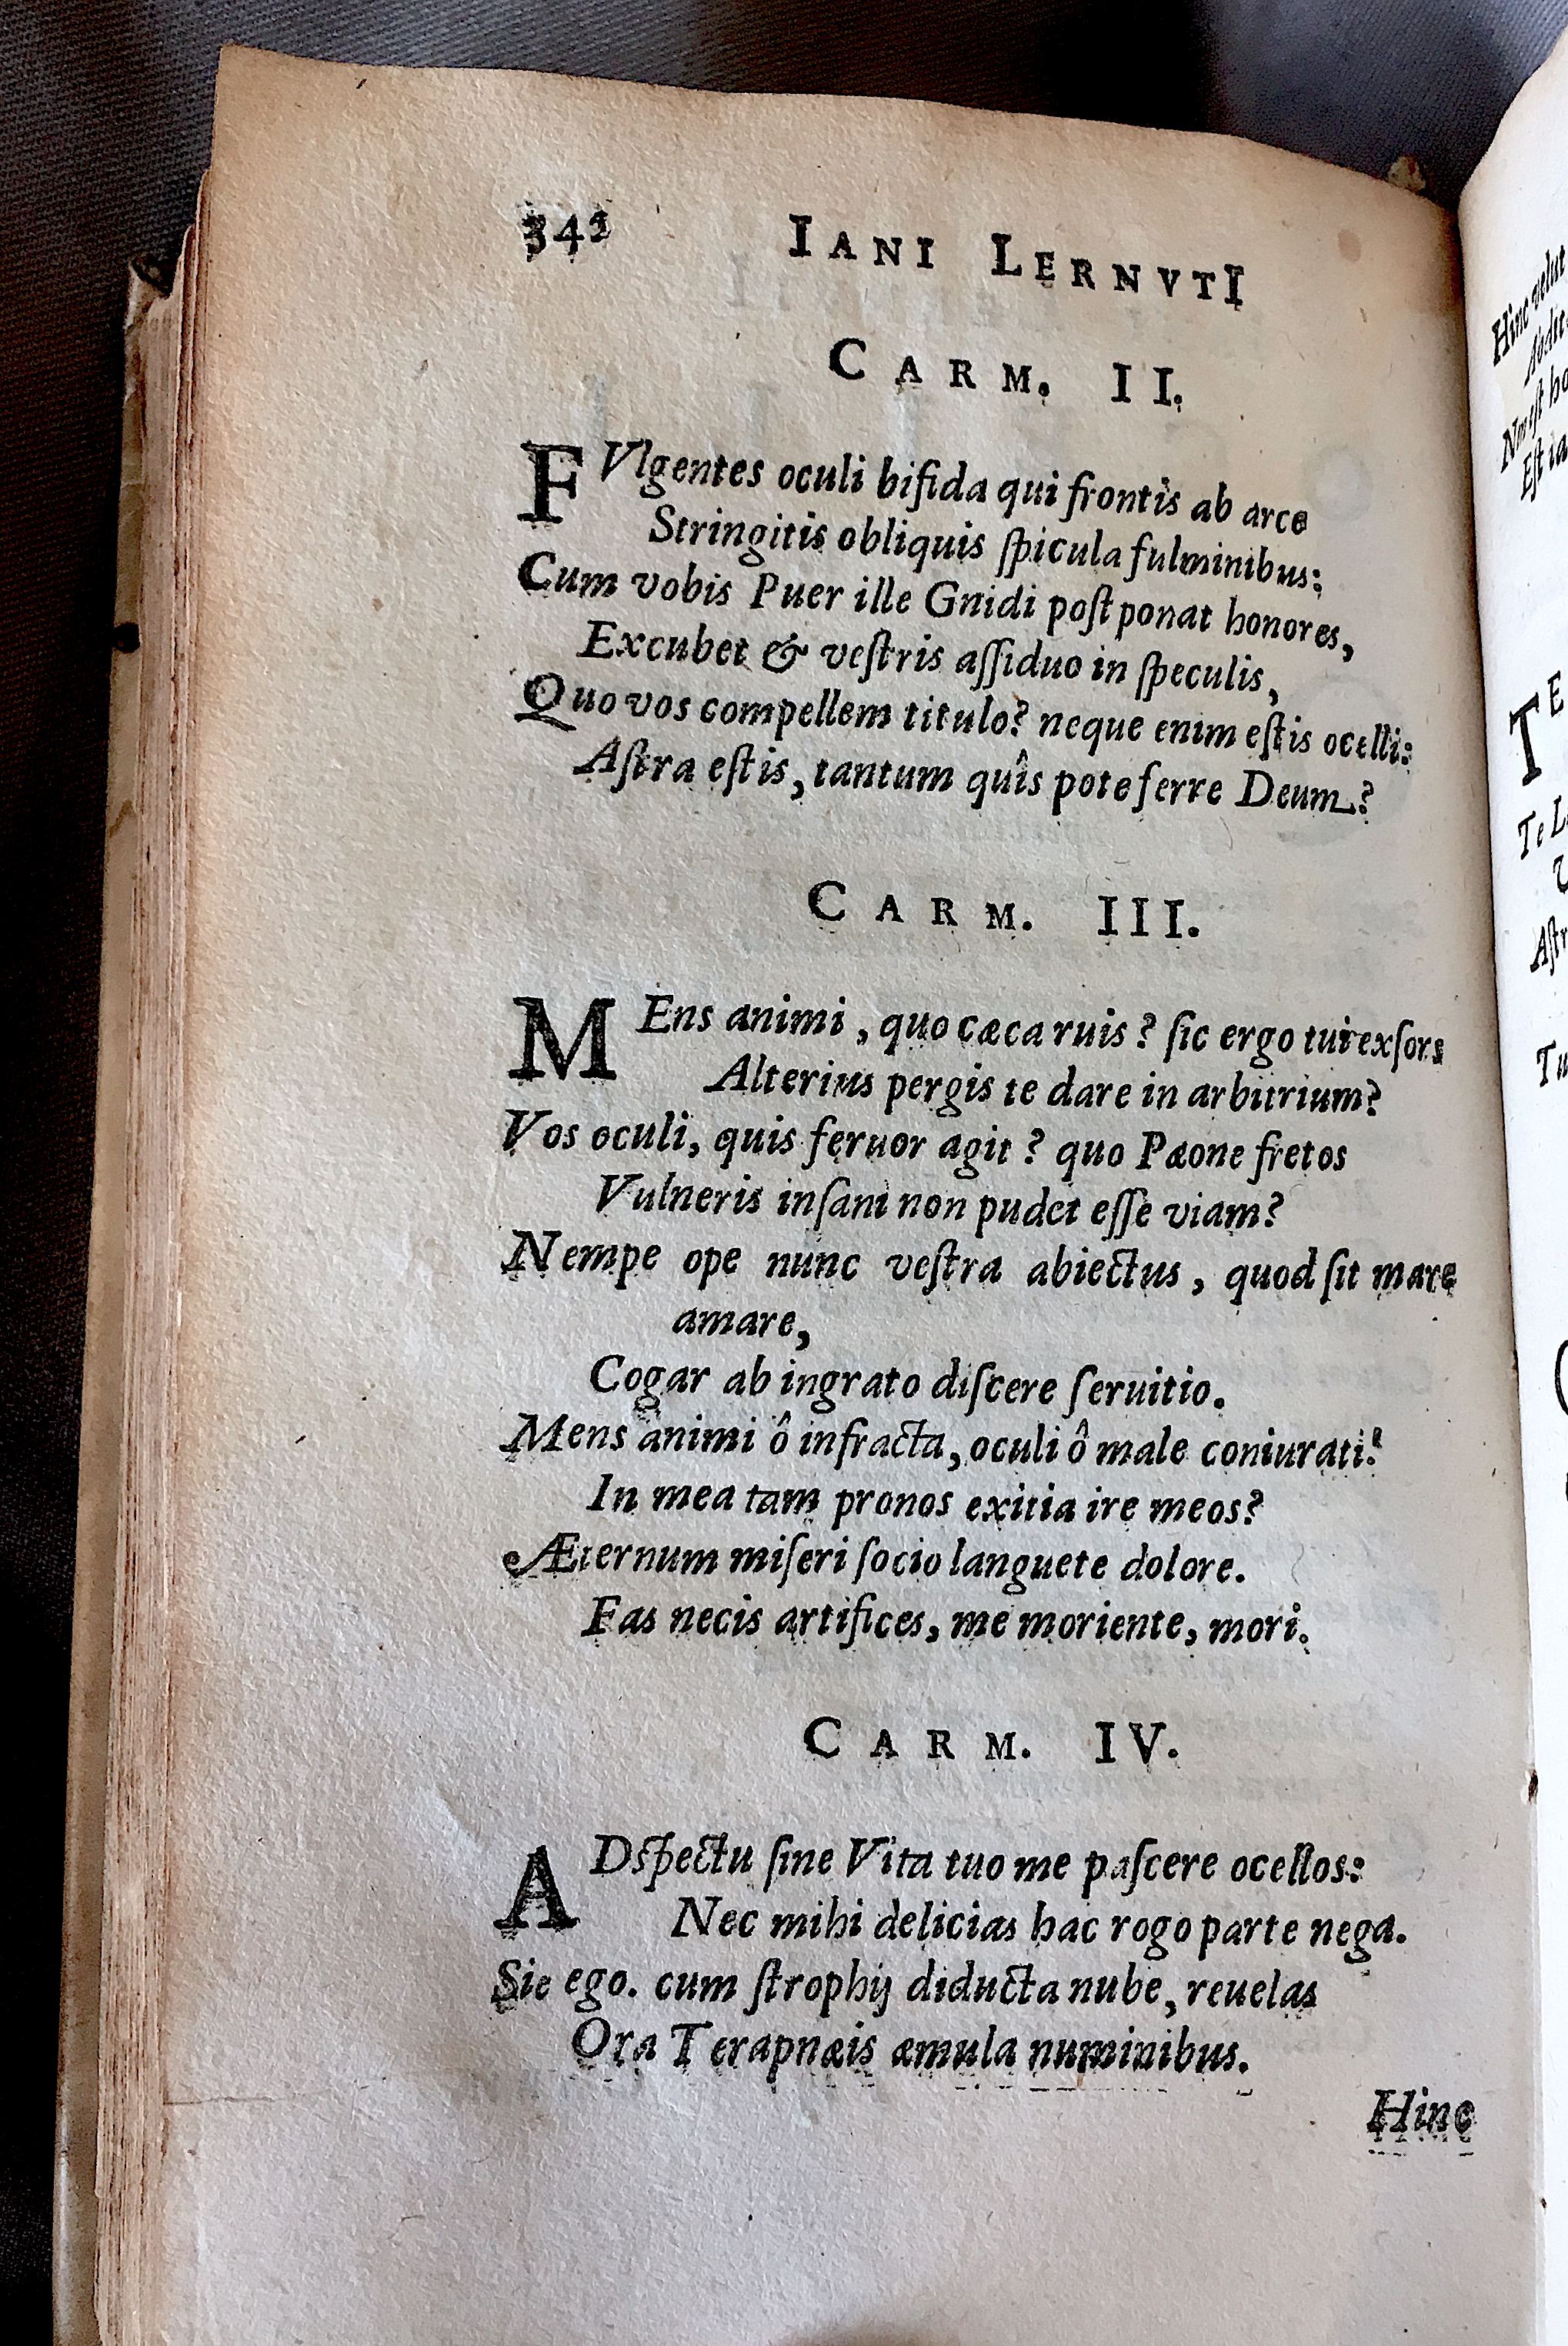 342 IANI LERNVTI
CARM. II.
FVlgentes oculi bifida qui frontis ab arce
Stringitis obliquis ſpicula fulminibus:
Cum vobis Puer ille Gnidi poſtponat honores,
Excubet & veſtris aſſiduo in ſpeculis,
Quo vos compellem titulo? neque enim eſtis ocelli:
Aſtra eſtis, tantum quîs pote ferre Deum?
CARM. III.
MEns animi, quo cæca ruis? ſic ergo tui exſors
Alterius pergis te dare in arbitrium?
Vos oculi, quis feruor agit? quo Pæone fretos
Vulneris inſani non pudet eſſe viam?
Nempe ope nunc veſtra abiectus, quod ſit mare
amare,
Cogar ab ingrato diſcere ſeruitio.
Mens animi ô infracta, oculi ô male coniurati!
In mea tam pronos exitia ire meos?
Æternum miſeri ſocio languete dolore.
Fas necis artifices, me moriente, mori.
CARM. IV.
ADſpectu ſine Vita tuo me paſcere ocellos:
Nec mihi delicias hac rogo parte nega.
Sic ego. cum ſtrophij diducta nube, reuelas
Ora Terapnæis æmula numinibus.
Hinc
Hinc velut